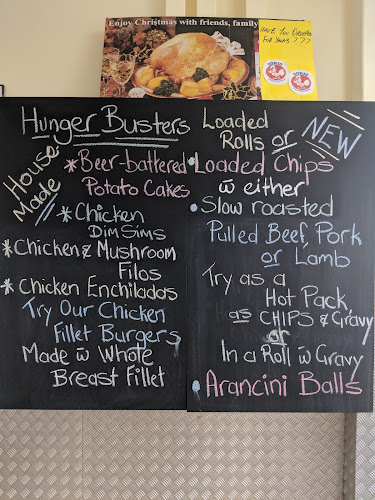 Enjoy Christmas with friends, family
Have You Ordered
For Xmas???
Hunger Busters
House
Made
*Beer-battered
Potato Cakes
*Chicken
Dim Sims
*Chicken & Mushroom
Filos
*Chicken Enchiladas
Try Our Chicken
Fillet Burgers
Made w̄ Whole
Breast Fillet
Loaded
Rolls or
NEW
•Loaded Chips
w̄ either
•Slow roasted
Pulled Beef, Pork
or Lamb
Try as a
Hot Pack,
as CHIPS & Gravy
or
In a Roll w̄ Gravy
•Arancini Balls